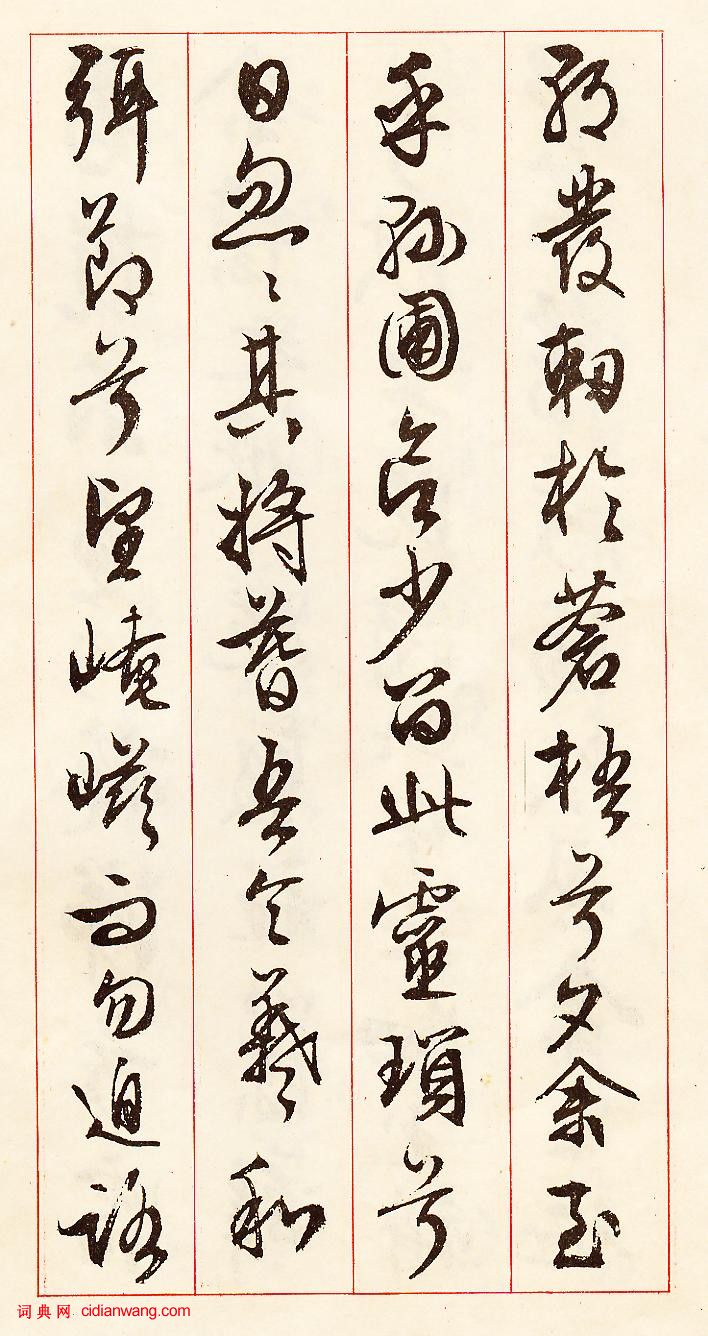 朝發軔於蒼梧兮夕余至
乎縣圃欲少留此靈瑣兮
日忽〻其將暮吾令羲和
弭節兮望崦嵫而勿迫路
词典网 cidianwang.com